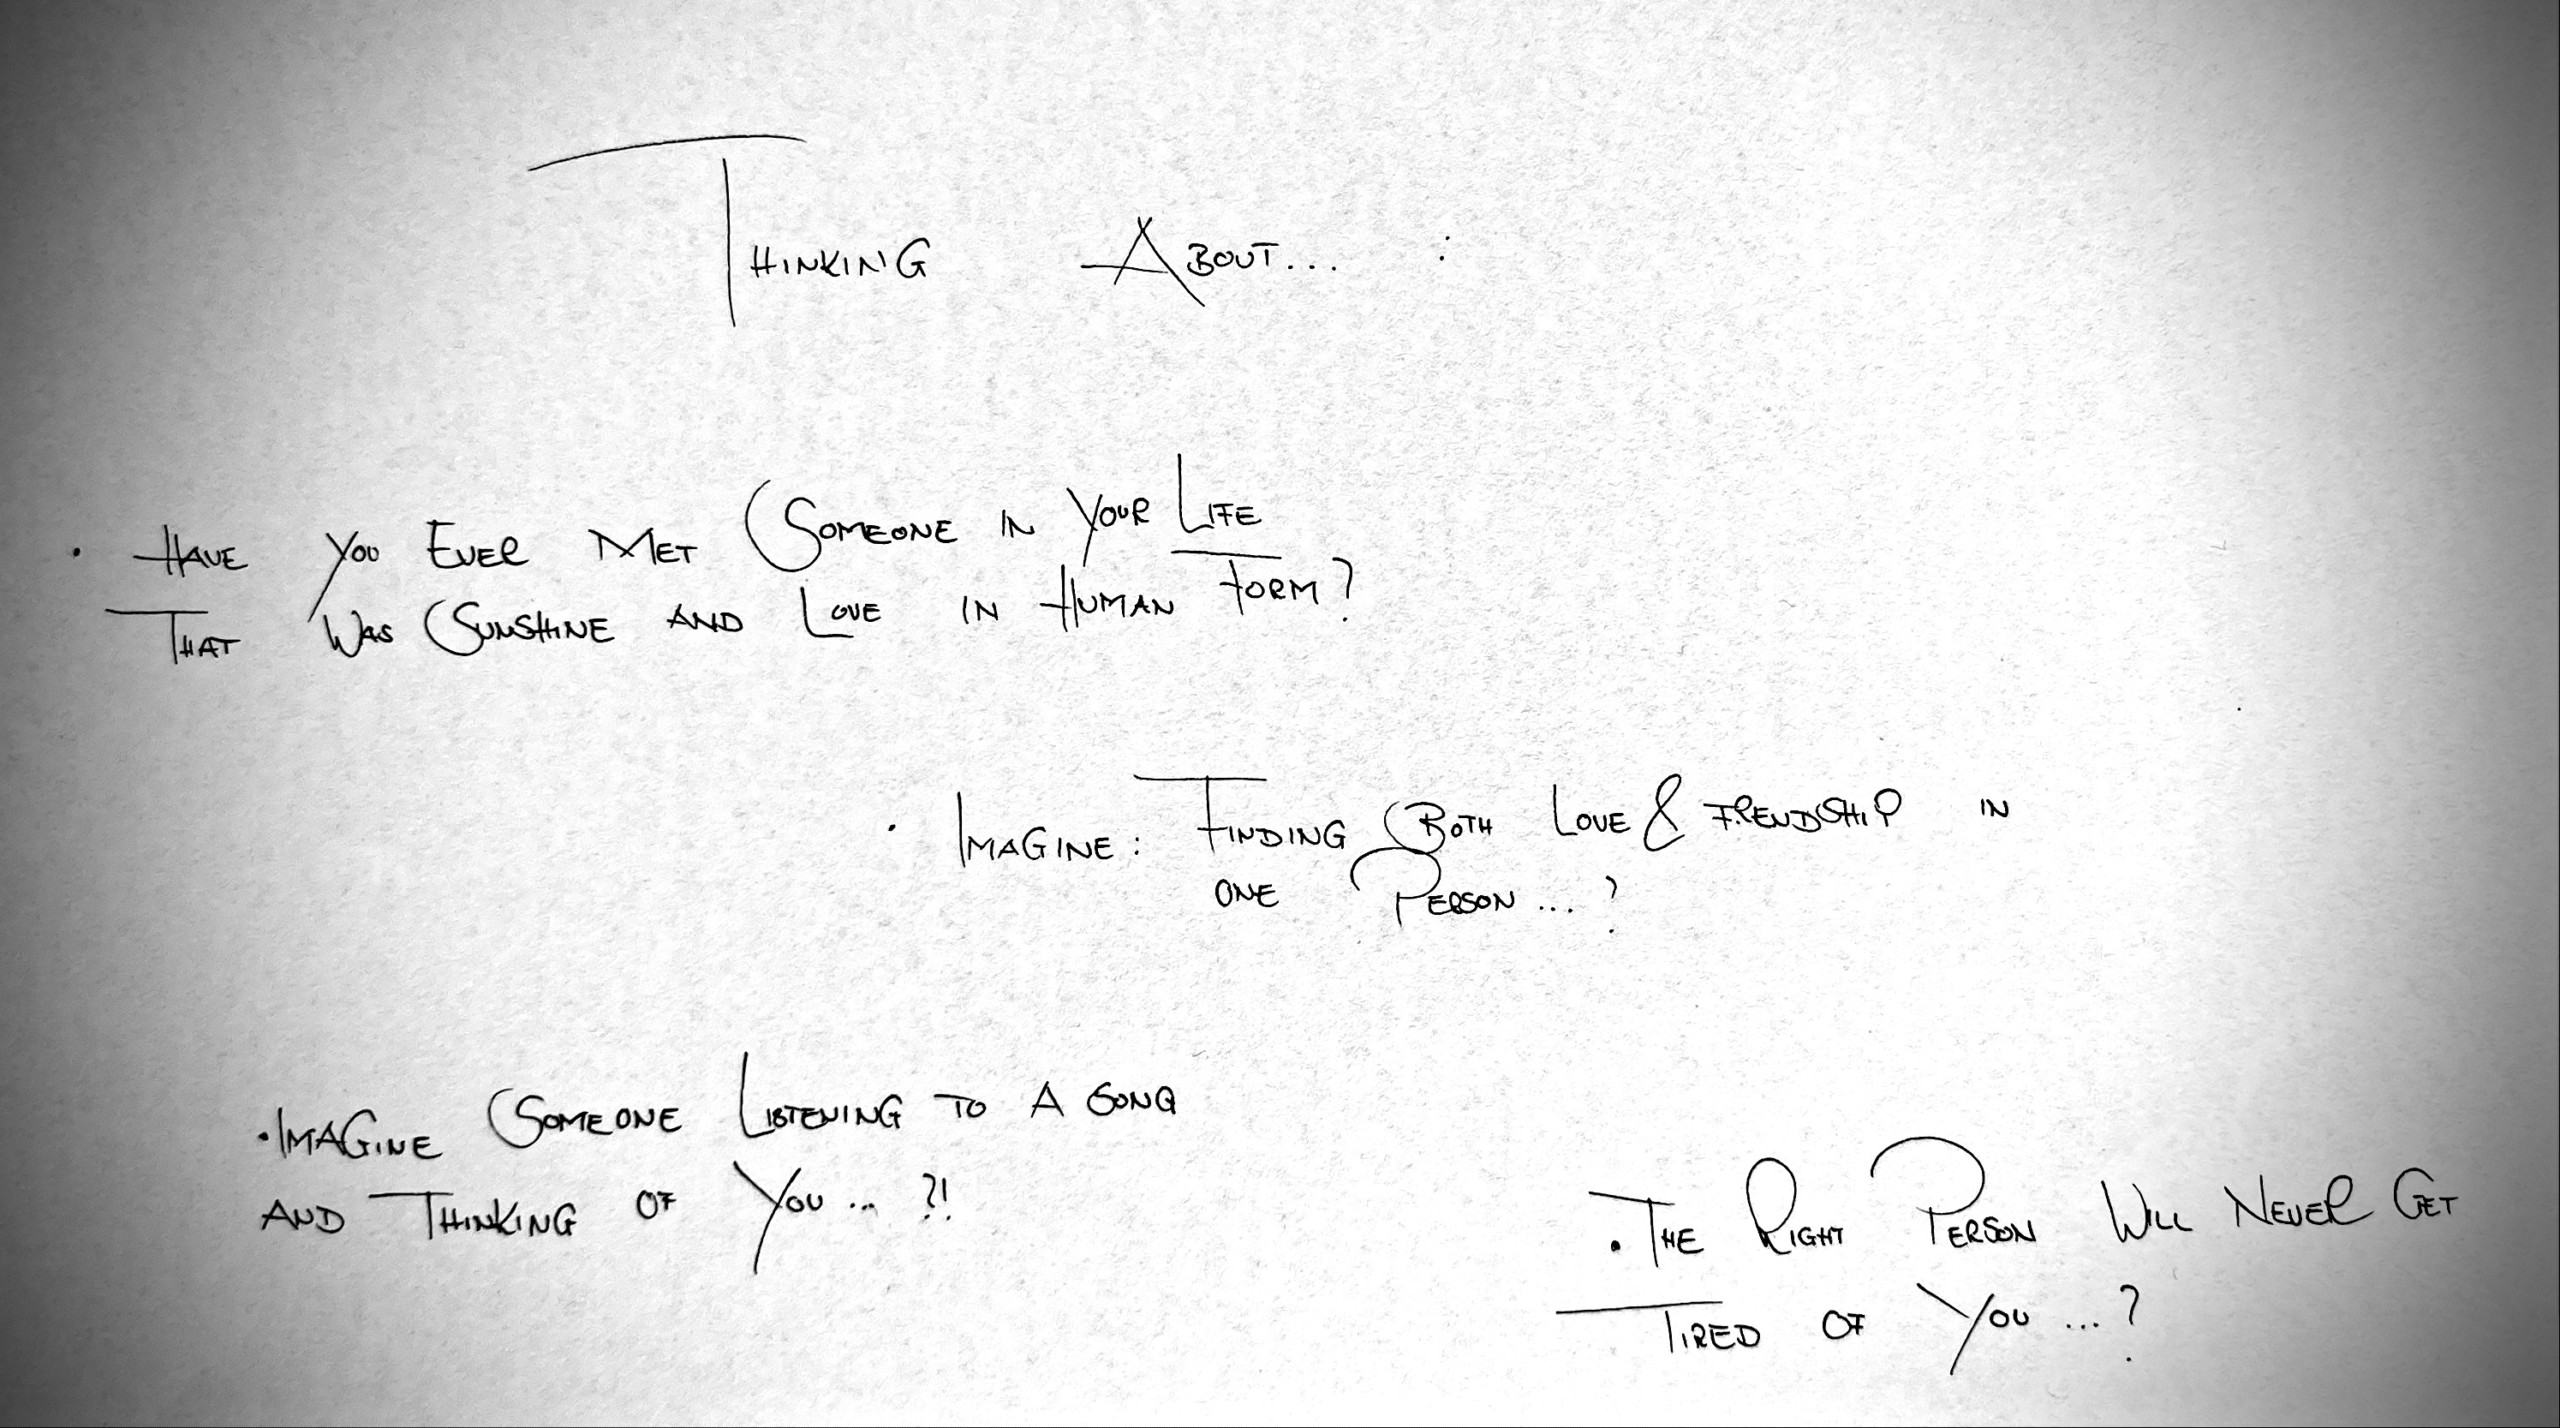 Thinking About... :
• Have You Ever Met Someone in Your Life
That Was Sunshine and Love in Human Form?
• Imagine: Finding Both Love & Friendship in
one Person...?
• Imagine Someone Listening to a song
and Thinking of You...?!
• The Right Person Will Never Get
Tired of You...?